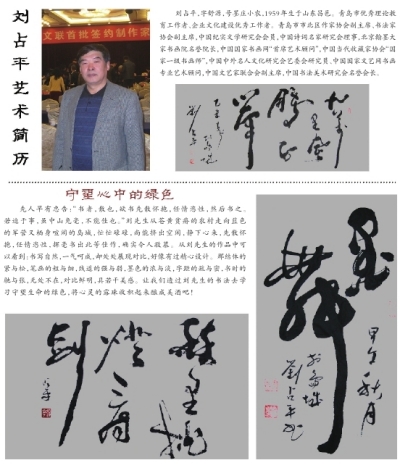 刘占平艺术简历
文联首批签约制作家
刘占平,字舒源,号墨庄小农,1959年生于山东莒县。青岛市优秀理论教
育工作者,企业文化建设优秀工作者。青岛市市北区作家协会副主席,书法家
协会副主席,中国纪实文学研究会会员,中国诗词名家研究会理事,北京翰墨天
家书画院名誉院长,中国国家书画网“首席艺术顾问”,中国当代收藏家协会“国
家一级书画师”,中国中外名人文化研究会艺委会研究员,中国国家文艺网书画
专业艺术顾问,中国文艺家联合会副主席,中国书法美术研究会名誉会长。
守望心中的绿色
先人早有忠告:“书者,散也,欲书先散怀抱,任情恣性,然后书之,
若迫于事,虽中山兔毫,不能佳也。”刘先生从苍黄贫瘠的农村走向蓝色
的军营又栖身喧闹的岛城,忙忙碌碌,尚能挤出空间,静下心来,先散怀
抱,任情恣性,挥毫书出此等佳作,确实令人敬慕。从刘先生的作品中可
以看到:书写自然,一气呵成,却处处展现对比,好像有过精心设计。那结体的
紧与松,笔画的粗与细,线道的强与弱,墨色的浓与淡,字距的疏与密,书时的
驰与张,无处不在,对比鲜明,且若干美感。让我们透过刘先生的书法去学
习守望生命的绿色,将心灵的露珠收积起来酿成美酒吧!
墨舞
甲午秋月
刘占平书